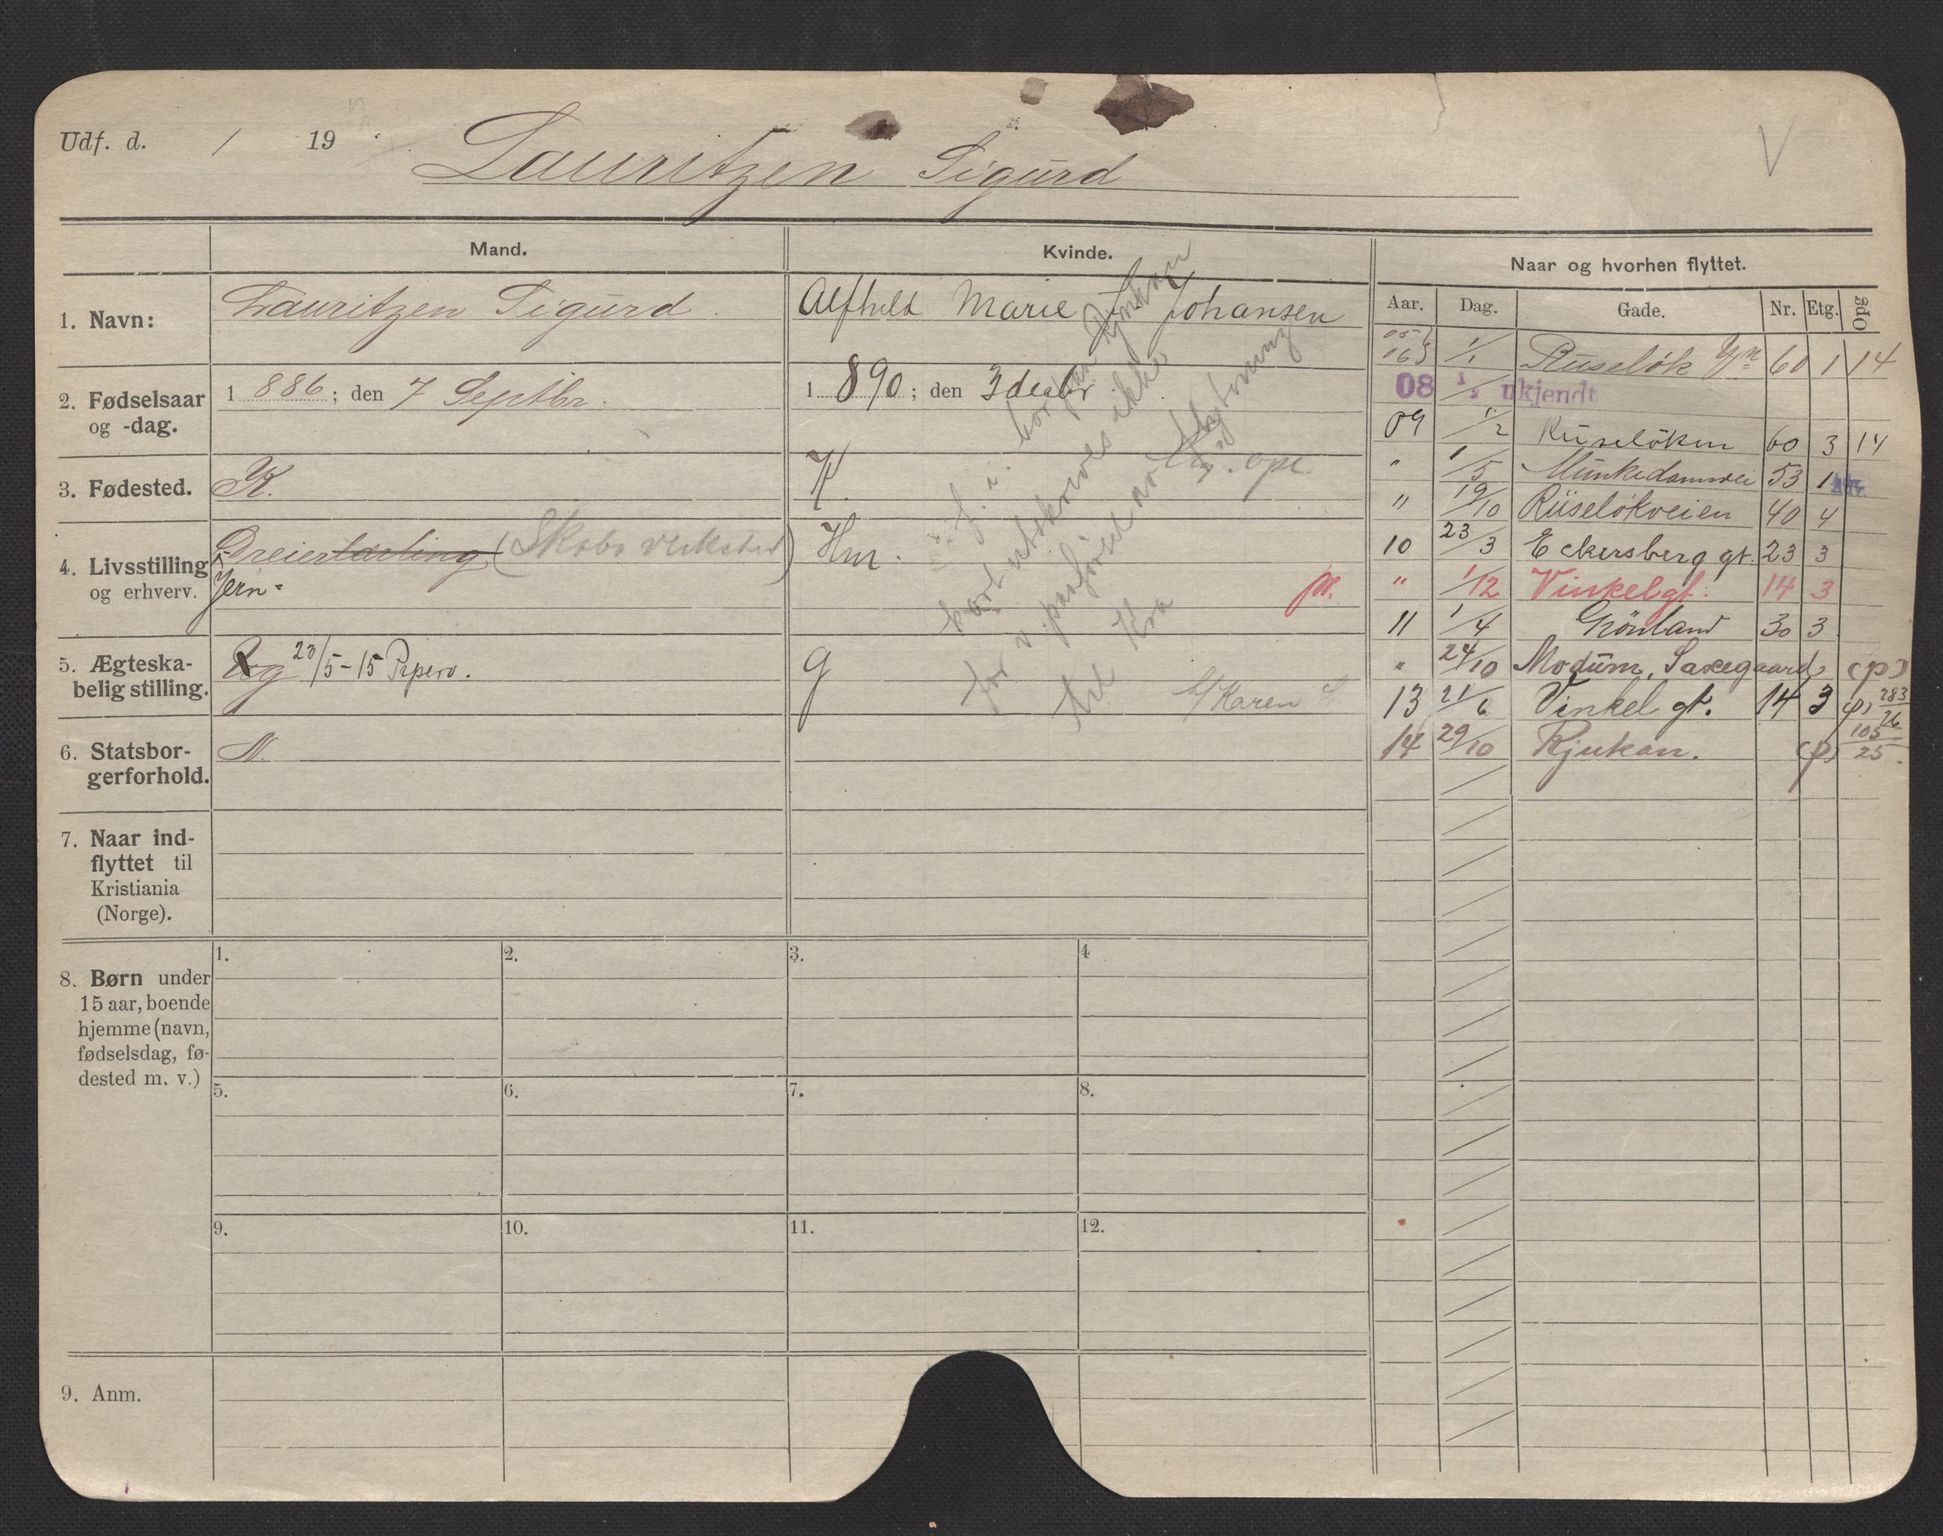 Udf. d. / 19
Lauritzen Sigurd
V
Mand.
Kvinde.
Naar og hvorhen flyttet.
Aar. Dag. Gade. Nr. Etg. Opg
1. Navn:
Lauritzen Sigurd.
Alfhild Marie f. Johansen
2. Fødselsaar
og -dag.
1886; den 7 Septbr.
1890; den 3 decbr
3. Fødested.
K.
K.
4. Livsstilling
og erhverv.
Dreierlærling (Skabo verksted)
Jern-
Hnr.
pr.
5. Ægteska-
belig stilling.
g 23/5-15 Piperv.
g
Karen
6. Statsbor-
gerforhold.
N.
7. Naar ind-
flyttet til
Kristiania
(Norge).
8. Børn under
15 aar, boende
hjemme (navn,
fødselsdag, fø-
dested m. v.)
1. 2. 3. 4
5. 6. 7. 8.
9. 10. 11. 12.
9. Anm.
f. i. bor paa Rjukan
kort utskreves ikke
for v. paaføres av flytning
til Kra
05
06 1/1 Ruseløk 60 1 14
08 1/2 ukjendt
09 1/2 Ruseløkvn 60 3 14
" 1/5 Munkedamsvei 53 1
" 19/10 Ruseløkveien 40 4
10 23/3 Eckersberg gt. 23 3
" 1/12 Vinkelgt. 14 3
11 1/4 Grønland 30 3
" 24/10 Modum, Saxegaard, (p)
13 21/6 Vinkel gt. 14 3 (p) 283/26
14 29/10 Rjukan. (p) 105/25.